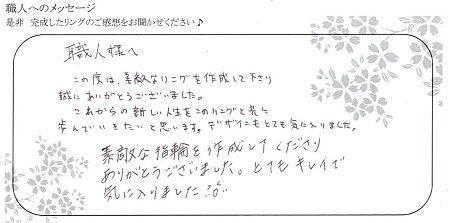 職人へのメッセージ
是非 完成したリングのご感想をお聞かせください♪
職人様へ
この度は、素敵なリングを作成して下さり
誠にありがとうございました。
これからの新しい人生をこのリングと共に
歩んでいきたいと思います。デザインもとても気に入りました。
素敵な指輪を作成してくださり
ありがとうございました。とてもキレイで
気に入りました